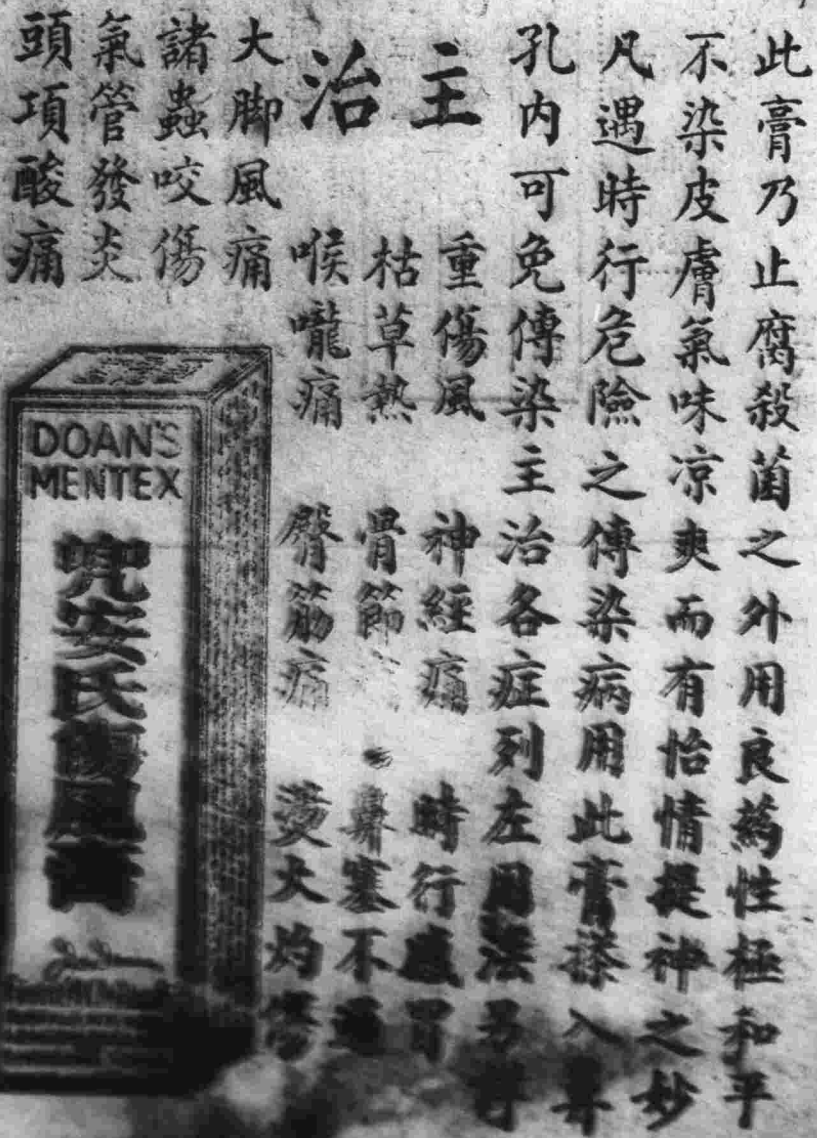 此膏乃止腐殺菌之外用良葯性極和平
不染皮膚氣味凉爽而有怡情提神之妙
凡遇時行危險之傳染病用此膏搽入鼻
孔内可免傳染主治各症列左用法另詳
主治
重傷風 神經痛 時行感冒
枯草熱 骨節 鼻塞不通
喉嚨痛 臀筋痛 燙火灼傷
大脚風痛
諸蟲咬傷
氣管發炎
頭項酸痛
DOAN'S
MENTEX
兜安氏傷風膏